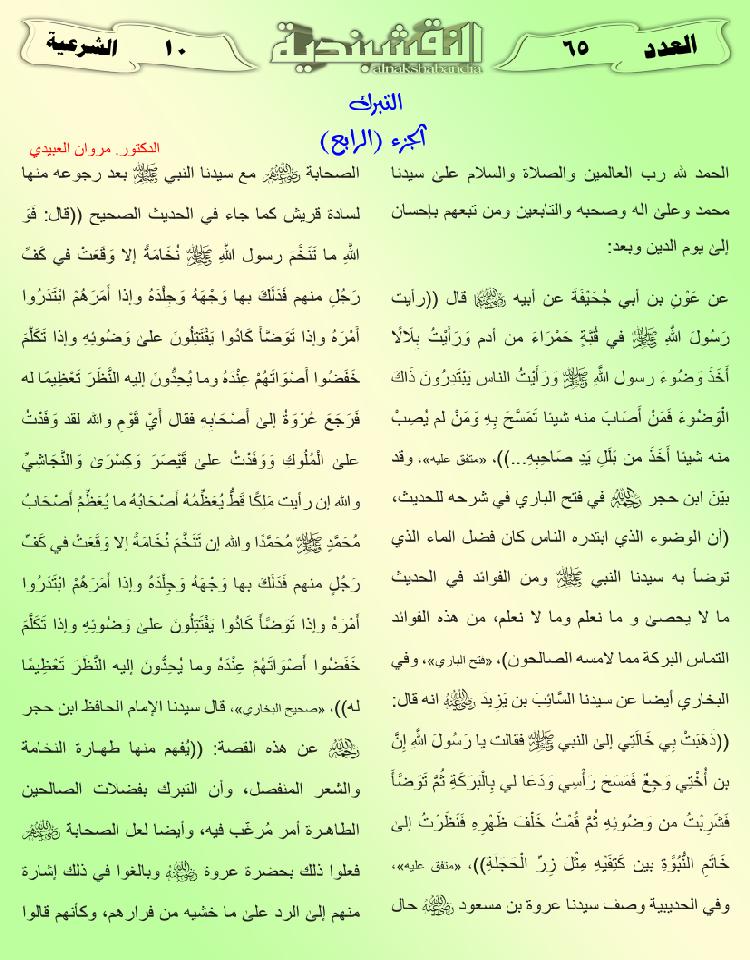 العدد
٦٥
النقشبندية
alnakshabandia
١٠
الشرعية
التبرك
الجزء (الرابع)
الدكتور. مروان العبيدي
الحمد لله رب العالمين والصلاة والسلام على سيدنا
محمد وعلى اله وصحبه والتابعين ومن تبعهم بإحسان
إلى يوم الدين وبعد:
عن عَوْنِ بن أبي جُحَيْفَةَ عن أبيه رضي الله عنهما قال ((رأيت
رَسُولَ اللهِ ﷺ في قُبَّةٍ حَمْرَاءَ من أدم وَرَأَيْتُ بِلَالًا
أَخَذَ وَضُوءَ رسول اللَّهِ ﷺ وَرَأَيْتُ الناس يَبْتَدِرُونَ ذَاكَ
الْوَضُوءَ فَمَنْ أَصَابَ منه شيئا تَمَسَّحَ بِهِ وَمَنْ لم يُصِبْ
منه شيئا أَخَذَ من بَلَلِ يَدِ صَاحِبِهِ...))، «متفق عليه»، وقد
بيّنَ ابن حجر رحمه الله في فتح الباري في شرحه للحديث،
(أن الوضوء الذي ابتدره الناس كان فضل الماء الذي
توضأ به سيدنا النبي ﷺ ومن الفوائد في الحديث
ما لا يحصى و ما نعلم وما لا نعلم، من هذه الفوائد
التماس البركة مما لامسه الصالحون)، «فتح الباري»، وفي
البخاري أيضا عن سيدنا السَّائِبَ بن يَزِيدَ رضي الله عنه انه قال:
((ذَهَبَتْ بِي خَالَتِي إلى النبي ﷺ فقالت يا رَسُولَ اللَّهِ إِنَّ
بن أُخْتِي وَجِعٌ فَمَسَحَ رَأْسِي وَدَعَا لي بِالْبَرَكَةِ ثُمَّ تَوَضَّأَ
فَشَرِبْتُ من وَضُوئِهِ ثُمَّ قُمْتُ خَلْفَ ظَهْرِهِ فَنَظَرْتُ إلى
خَاتَمِ النُّبُوَّةِ بين كَتِفَيْهِ مِثْلَ زِرِّ الْحَجَلَةِ))، «متفق عليه»،
وفي الحديبية وصف سيدنا عروة بن مسعود رضي الله عنه حال
الصحابة رضي الله عنهم مع سيدنا النبي ﷺ بعد رجوعه منها
لسادة قريش كما جاء في الحديث الصحيح ((قال: فَوَ
اللهِ ما تَنَخَّمَ رسول اللهِ ﷺ نُخَامَةً إلا وَقَعَتْ في كَفِّ
رَجُلٍ منهم فَدَلَكَ بها وَجْهَهُ وَجِلْدَهُ وإذا أَمَرَهُمْ ابْتَدَرُوا
أَمْرَهُ وإذا تَوَضَّأَ كَادُوا يَقْتَتِلُونَ على وَضُوئِهِ وإذا تَكَلَّمَ
خَفَضُوا أَصْوَاتَهُمْ عِنْدَهُ وما يُحِدُّونَ إليه النَّظَرَ تَعْظِيمًا له
فَرَجَعَ عُرْوَةُ إلى أَصْحَابِهِ فقال أَيْ قَوْمِ والله لقد وَفَدْتُ
على الْمُلُوكِ وَوَفَدْتُ على قَيْصَرَ وَكِسْرَى وَالنَّجَاشِيِّ
والله إن رأيت مَلِكًا قَطُّ يُعَظِّمُهُ أَصْحَابُهُ ما يُعَظِّمُ أَصْحَابُ
مُحَمَّدٍ ﷺ مُحَمَّدًا والله إن تَنَخَّمَ نُخَامَةً إلا وَقَعَتْ في كَفِّ
رَجُلٍ منهم فَدَلَكَ بها وَجْهَهُ وَجِلْدَهُ وإذا أَمَرَهُمْ ابْتَدَرُوا
أَمْرَهُ وإذا تَوَضَّأَ كَادُوا يَقْتَتِلُونَ على وَضُوئِهِ وإذا تَكَلَّمَ
خَفَضُوا أَصْوَاتَهُمْ عِنْدَهُ وما يُحِدُّونَ إليه النَّظَرَ تَعْظِيمًا
له))، «صحيح البخاري»، قال سيدنا الإمام الحافظ ابن حجر
رحمه الله عن هذه القصة: ((يُفهم منها طهارة النخامة
والشعر المنفصل، وأن التبرك بفضلات الصالحين
الطاهرة أمر مُرغّب فيه، وأيضا لعل الصحابة رضي الله عنهم
فعلوا ذلك بحضرة عروة رضي الله عنه وبالغوا في ذلك إشارة
منهم إلى الرد على ما خشيه من فرارهم، وكأنهم قالوا